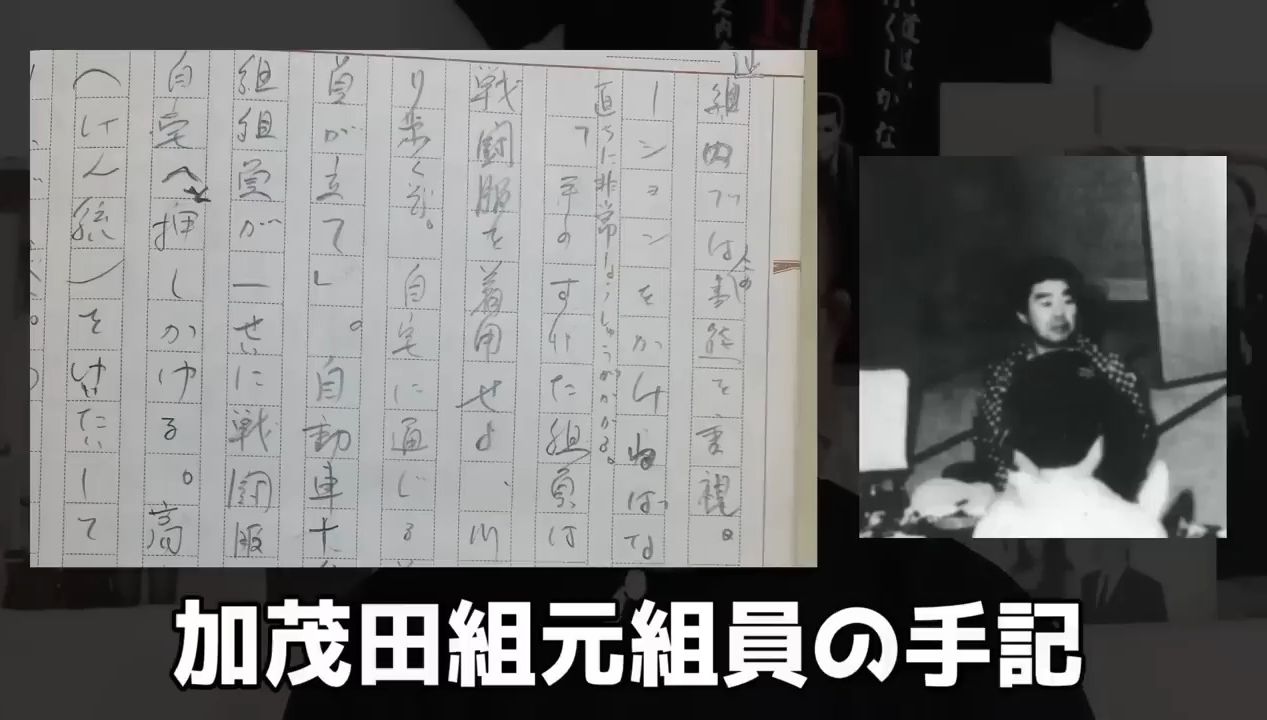 組内では
ーションをかけねばな
直ちに非常しょうしゅうがかかる。
手のすいた組員は
戦闘服を着用せよ、
り歩くぞ。自宅に通じる
員が立て。自動車十
組組員が一せいに戦闘服
自宅へ押しかける。高
(けん銃)をけいたいして
道は、
くしかな
加茂田組元組員の手記